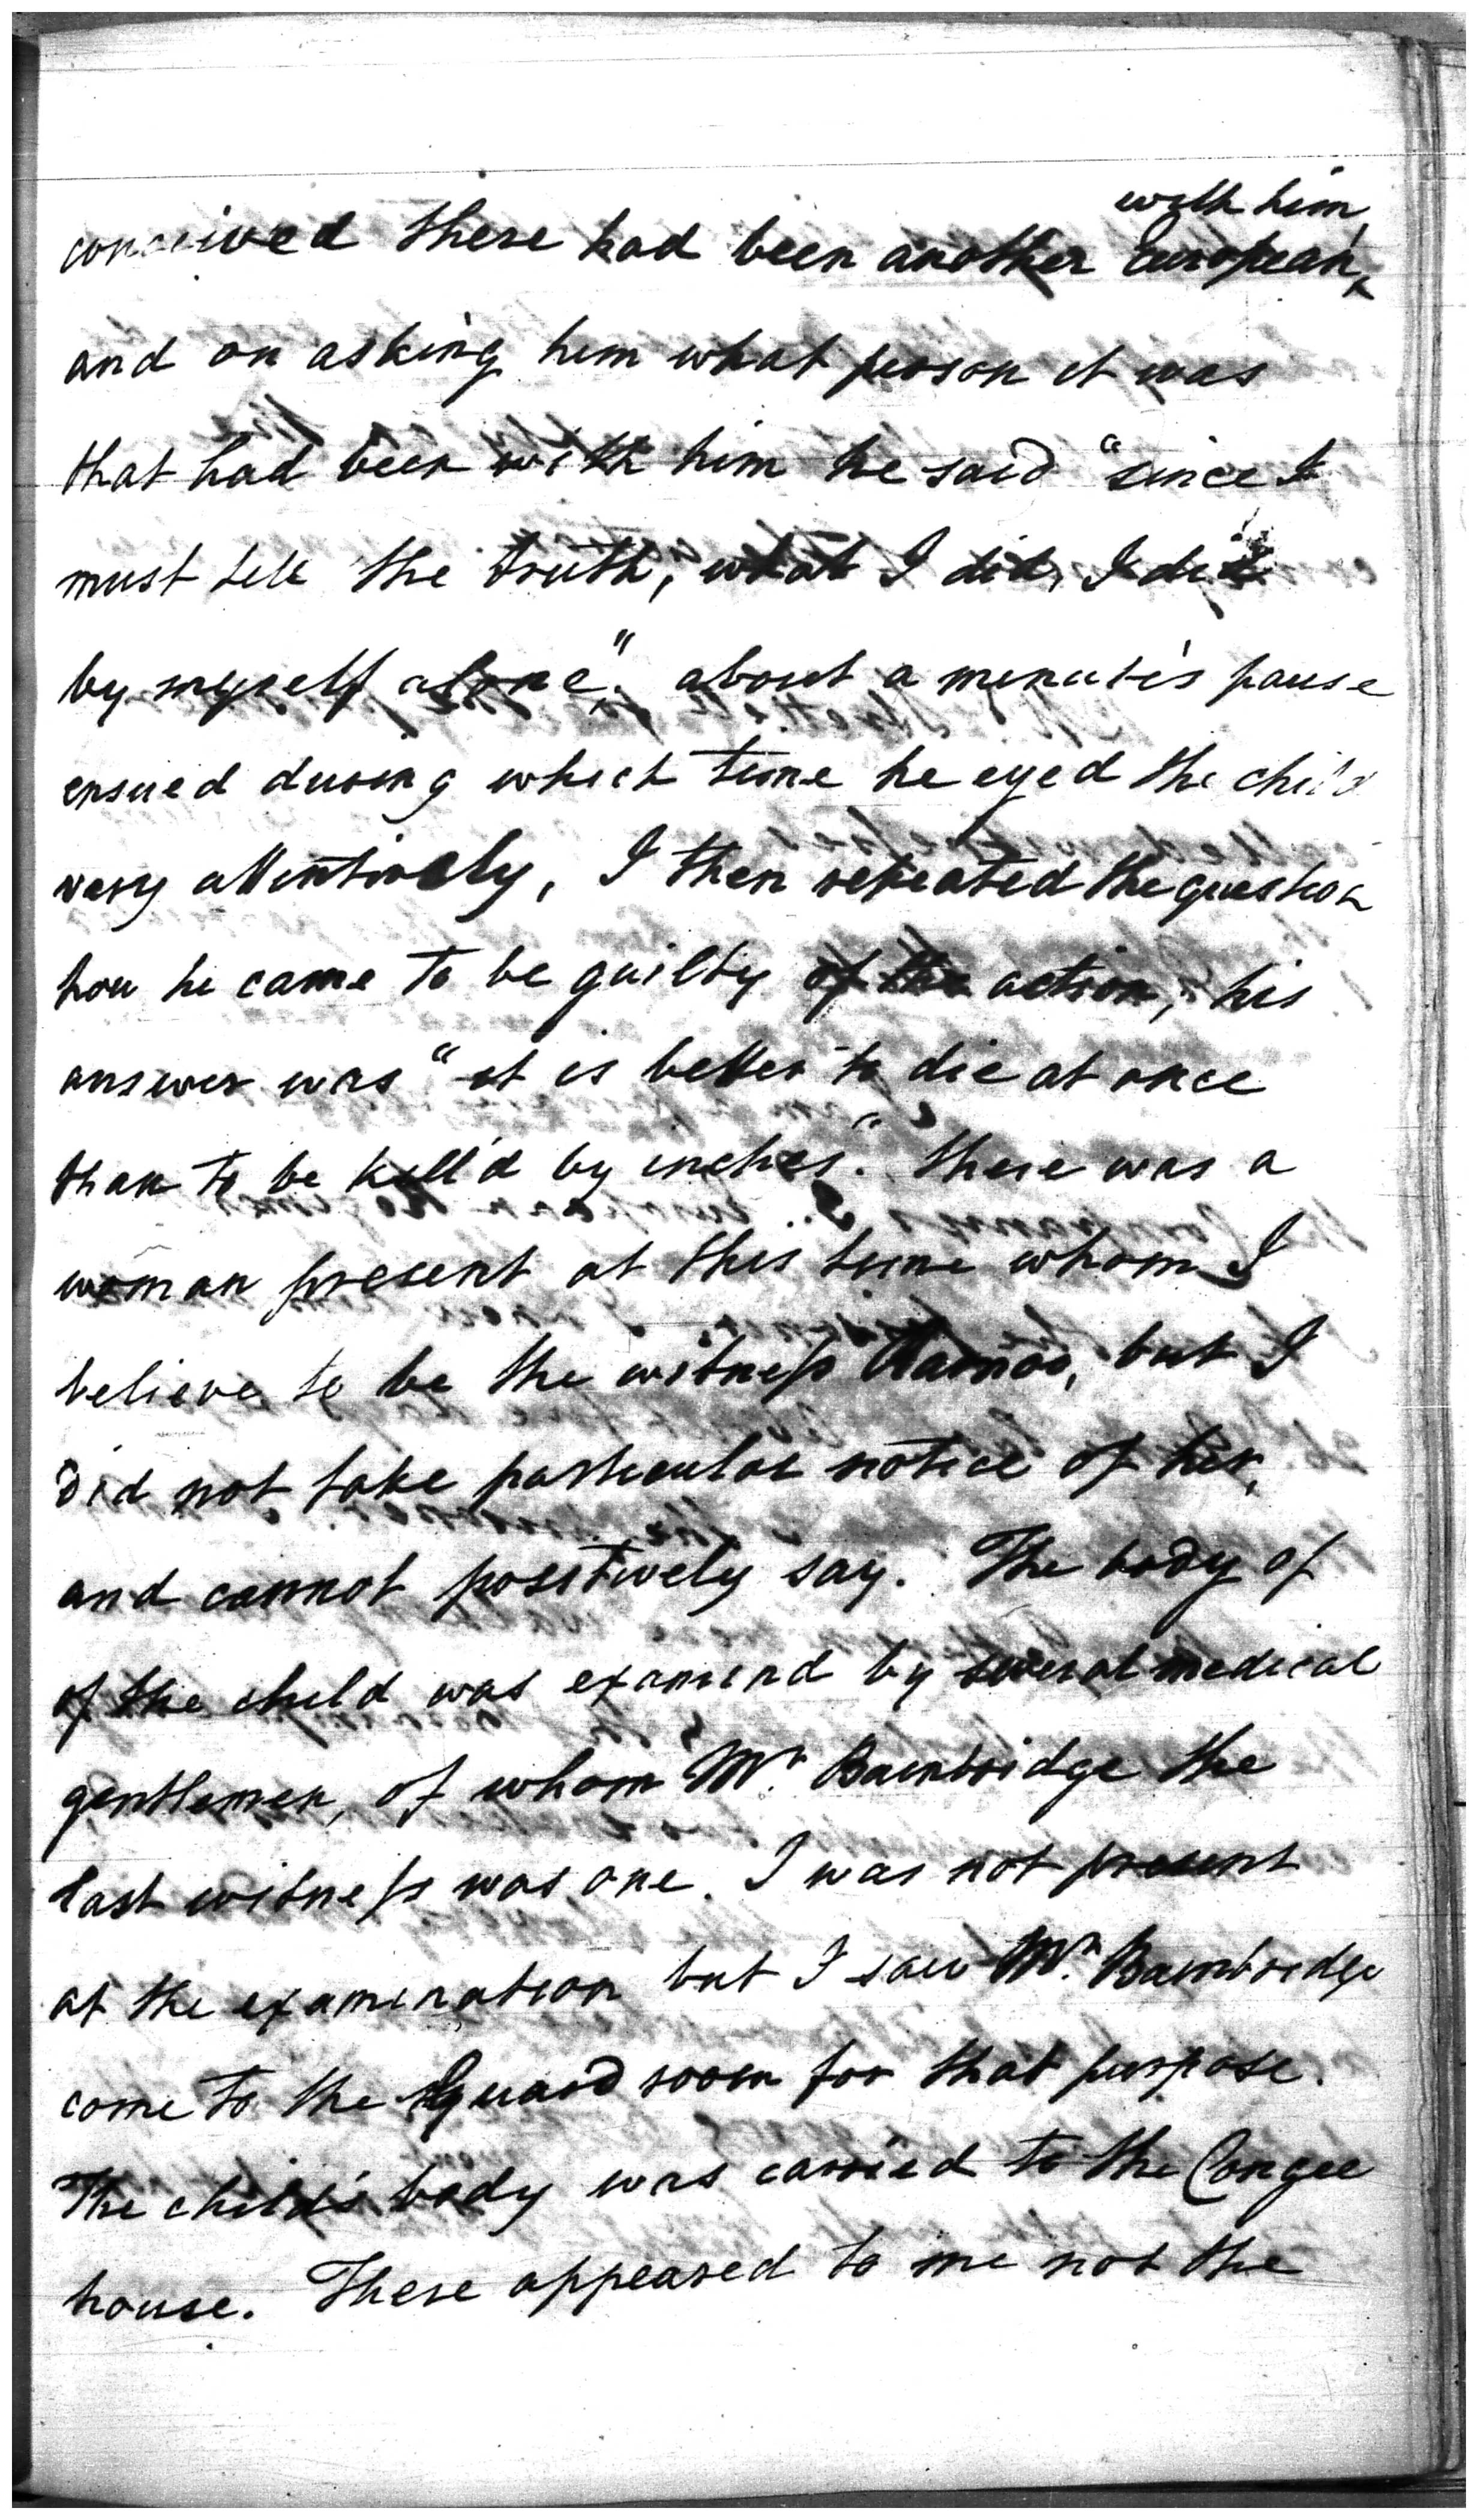 with him
conceived there had been another European,
and on asking him what person it was
that had been with him he said "since I
must tell the truth, what I did, I did
by myself alone", about a minute's pause
ensued during which time he eyed the child
very attentively, I then repeated the question
how he came to be guilty of the action, his
answer was "it is better to die at once
than to be kill'd by inches". there was a
woman present at this time whom I
believe to be the witness but I
did not take particular notice of her,
and cannot positively say. The body of
of the child was examind by several medical
gentlemen, of whom Mr. Bambridge the
last witness was one. I was not present
at the examination but I saw Mr. Bambridge
come to the Guard room for that purpose.
The child's body was carried to the Congee
house. There appeared to me not the